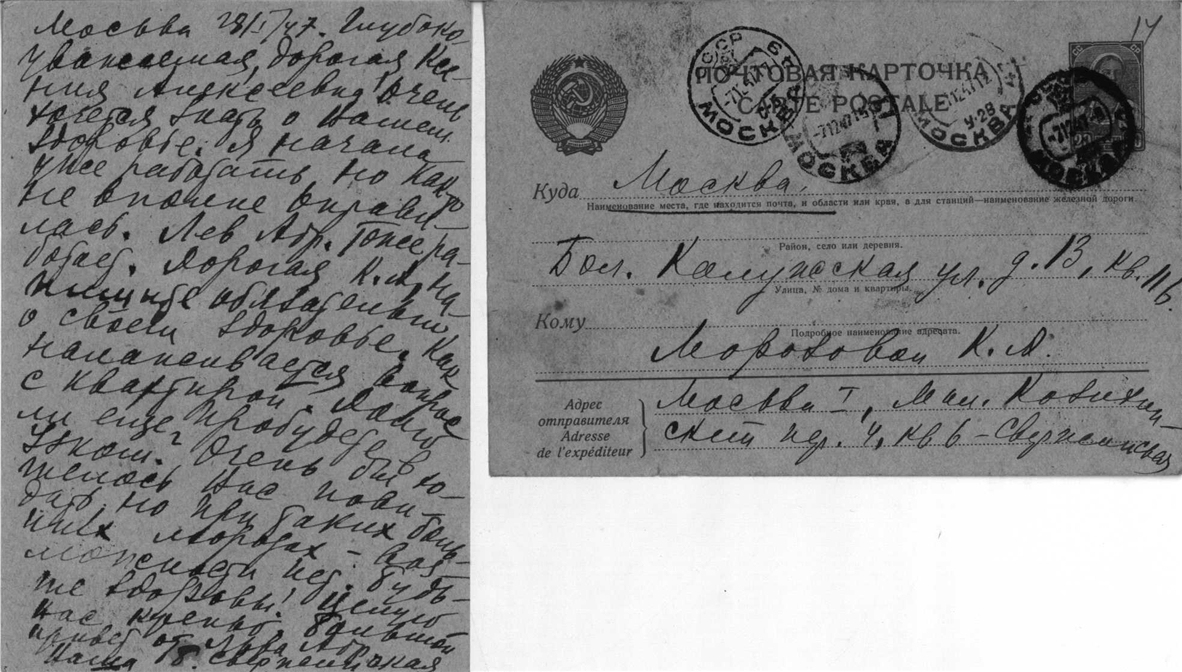 Москва 28/I/47. Глубоко
уважаемая, дорогая Ксе-
ния Алексеевна! Очень
хочется знать о Вашем
здоровье. Я начала
уже работать но как то
не вполне оправи-
лась. Лев Абр. тоже ра-
ботает. Дорогая К.А. на-
пишите обязательно
о своем здоровье. Как
налаживается вопрос
с квартирой. Долго
ли еще пробудете в
Очень бы хо-
телось Вас пови-
дать но при таких боль-
ших морозах – воз-
можности нет. Будь-
те здоровы! Целую
Вас крепко. Большой
привет от Льва Абр.
Ваша
14
ПОЧТОВАЯ КАРТОЧКА
CARTE POSTALE
СССР
МОСКВА
МОСКВА
МОСКВА
Куда Москва,
Наименование места, где находится почта, и области или края, а для станций—наименование железной дороги.
Район, село или деревня.
Бол. Калужская ул. д. 13, кв. 116
Улица, № дома и квартиры.
Кому
Подробное наименование адресата.
Морозовой К. А.
Адрес
отправителя
Adresse
de l'expéditeur
Москва I, Мал. Козихин-
ский пер. 4, кв 6 –